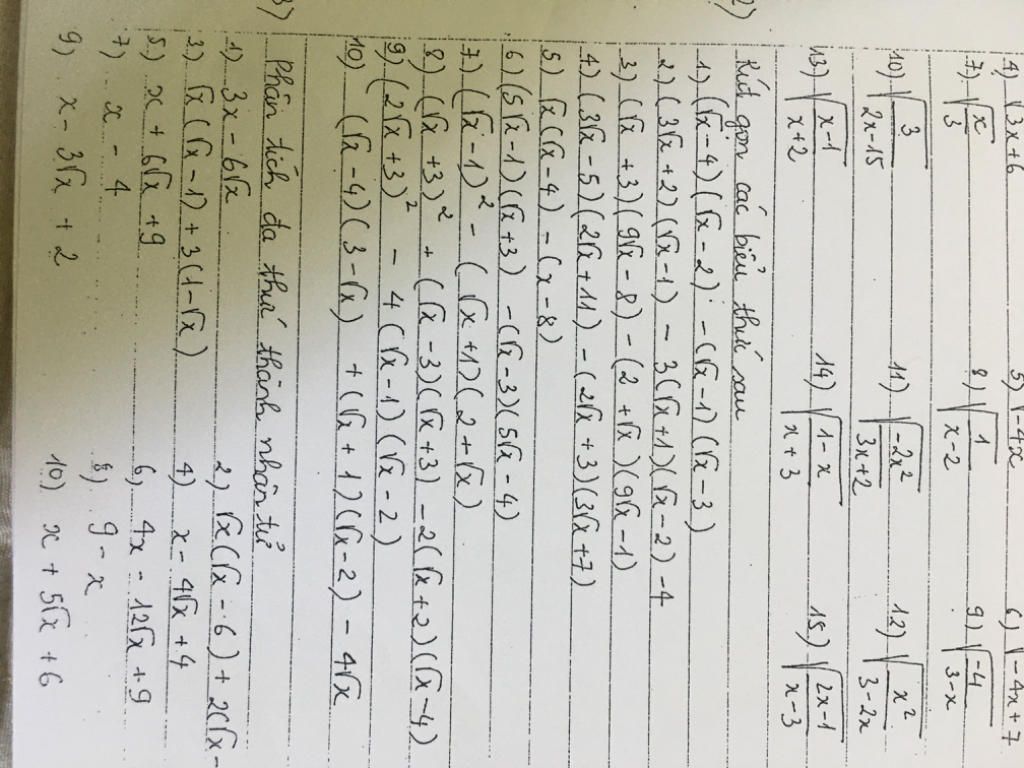 4) √3x+6 5) √-4x 6) √-4x+7
7) √x/3 8) √1/x-2 9) √-4/3-x
10) √3/2x-15 11) √-2x²/3x+2 12) √x²/3-2x
13) √x-1/x+2 14) √1-x/x+3 15) √2x-1/x-3
2) Rút gọn các biểu thức sau
1) (√x-4)(√x-2) - (√x-1)(√x-3)
2) (3√x+2)(√x-1) - 3(√x+1)(√x-2) -4
3) (√x+3)(9√x-8) - (2+√x)(9√x-1)
4) (3√x-5)(2√x+11) - (2√x+3)(3√x+7)
5) √x(√x-4) - (x-8)
6) (5√x-1)(√x+3) - (√x-3)(5√x-4)
7) (√x-1)² - (√x+1)(2+√x)
8) (√x+3)² + (√x-3)(√x+3) - 2(√x+2)(√x-4)
9) (2√x+3)² - 4(√x-1)(√x-2)
10) (√x-4)(3-√x) + (√x+1)(√x-2) - 4√x
3) Phân tích đa thức thành nhân tử
1) 3x - 6√x 2) √x(√x-6) + 2(√x-
3) √x(√x-1) + 3(1-√x) 4) x - 4√x + 4
5) x + 6√x + 9 6) 4x - 12√x + 9
7) x - 4 8) 9 - x
9) x - 3√x + 2 10) x + 5√x + 6